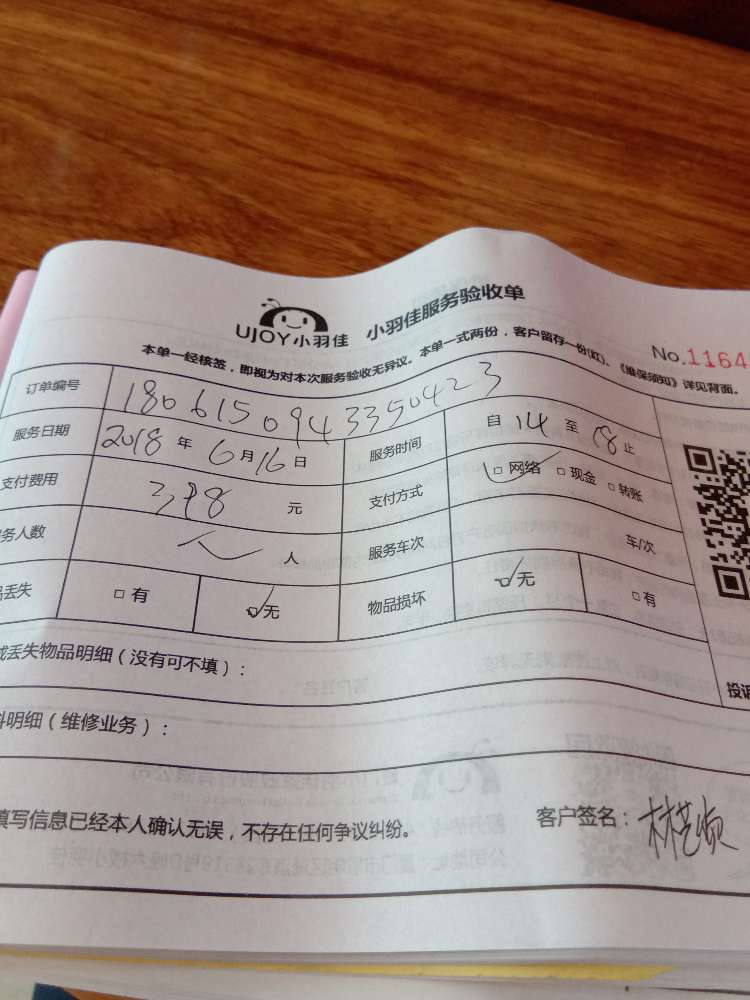 UJOY小羽佳 小羽佳服务验收单
No.1164
本单一经接签，即视为对本次服务验收无异议。本单一式两份，客户留存一份(红)。《维保须知》详见背面。
订单编号 1806150943350423
服务日期 2018 年 6 月 16 日 服务时间 自 14 至 18 止
支付费用 398 元 支付方式 □网络 □现金 □转账
务人数 人 服务车次 车/次
丢失 □有 □无 物品损坏 □无 □有
丢失物品明细（没有可不填）：
投诉
料明细（维修业务）：
填写信息已经本人确认无误，不存在任何争议纠纷。 客户签名：林艺